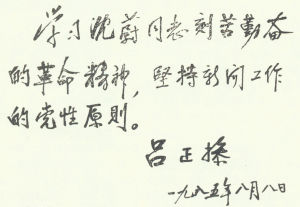 学习沈蔚同志刻苦勤奋
的革命精神，坚持新闻工作
的党性原则。
吕正操
一九八五年八月八日